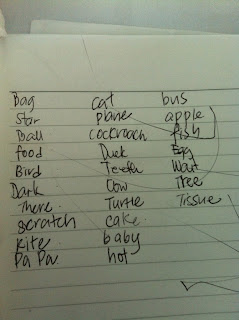 Bag
Star
Ball
food
Bird
Dark
There
scratch
kite
Pa Pa
cat
plane
cockroach
Duck
Teeth
Cow
Turtle
cake
baby
hot
bus
apple
fish
Egg
Wait
Tree
Tissue